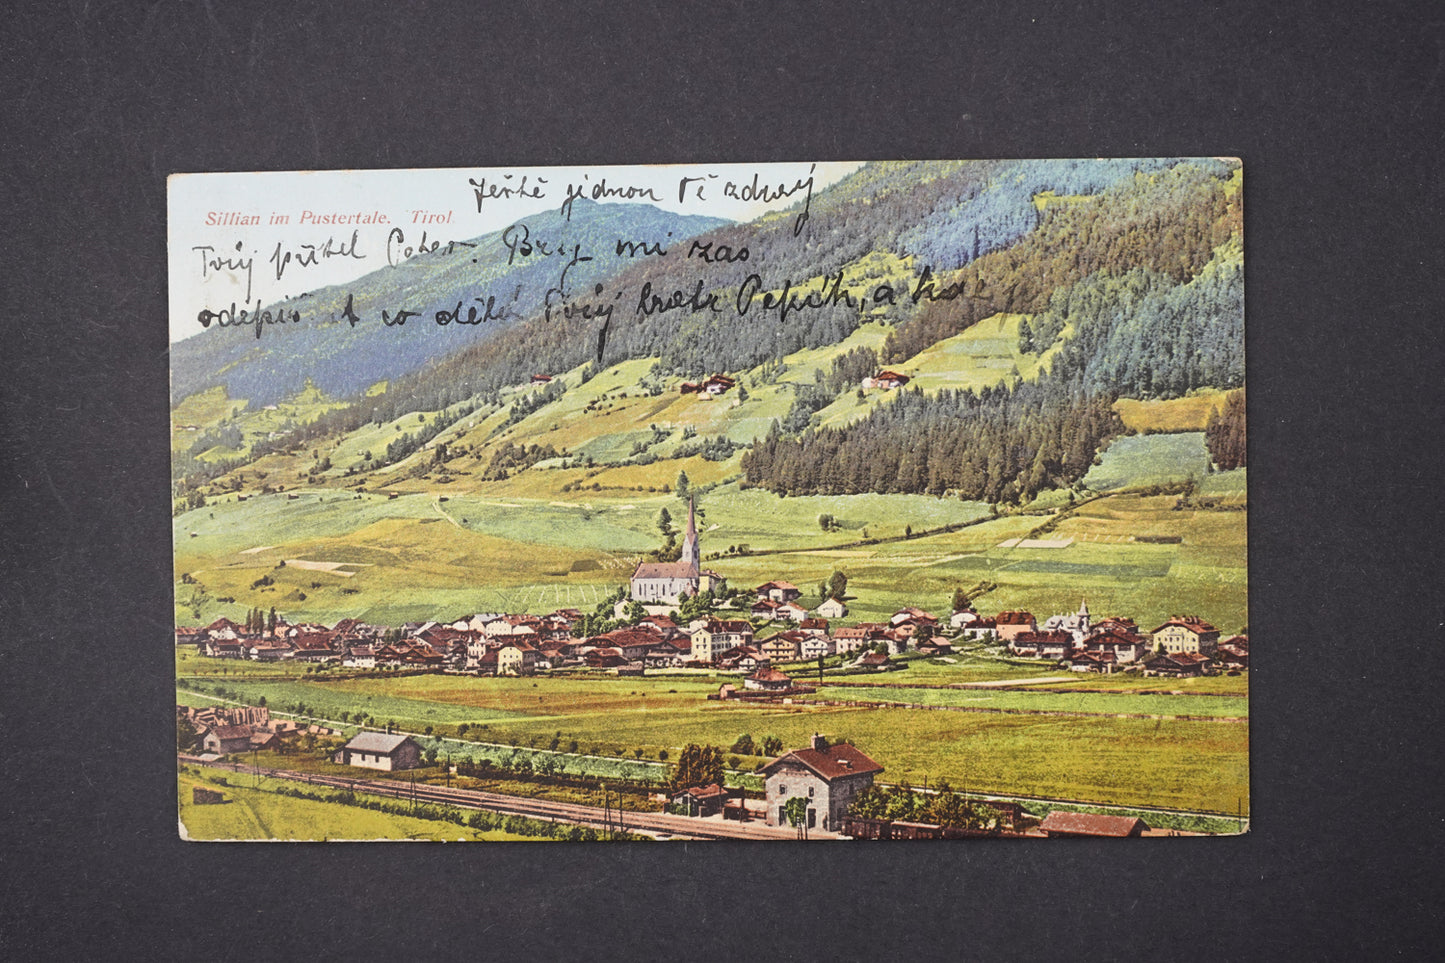 Ještě jednou Tě zdraví
Sillian im Pustertale. Tirol.
Tvůj přítel Brzy mi zas
odepiš a co dělá Tvůj bratr Pepích, a kde je